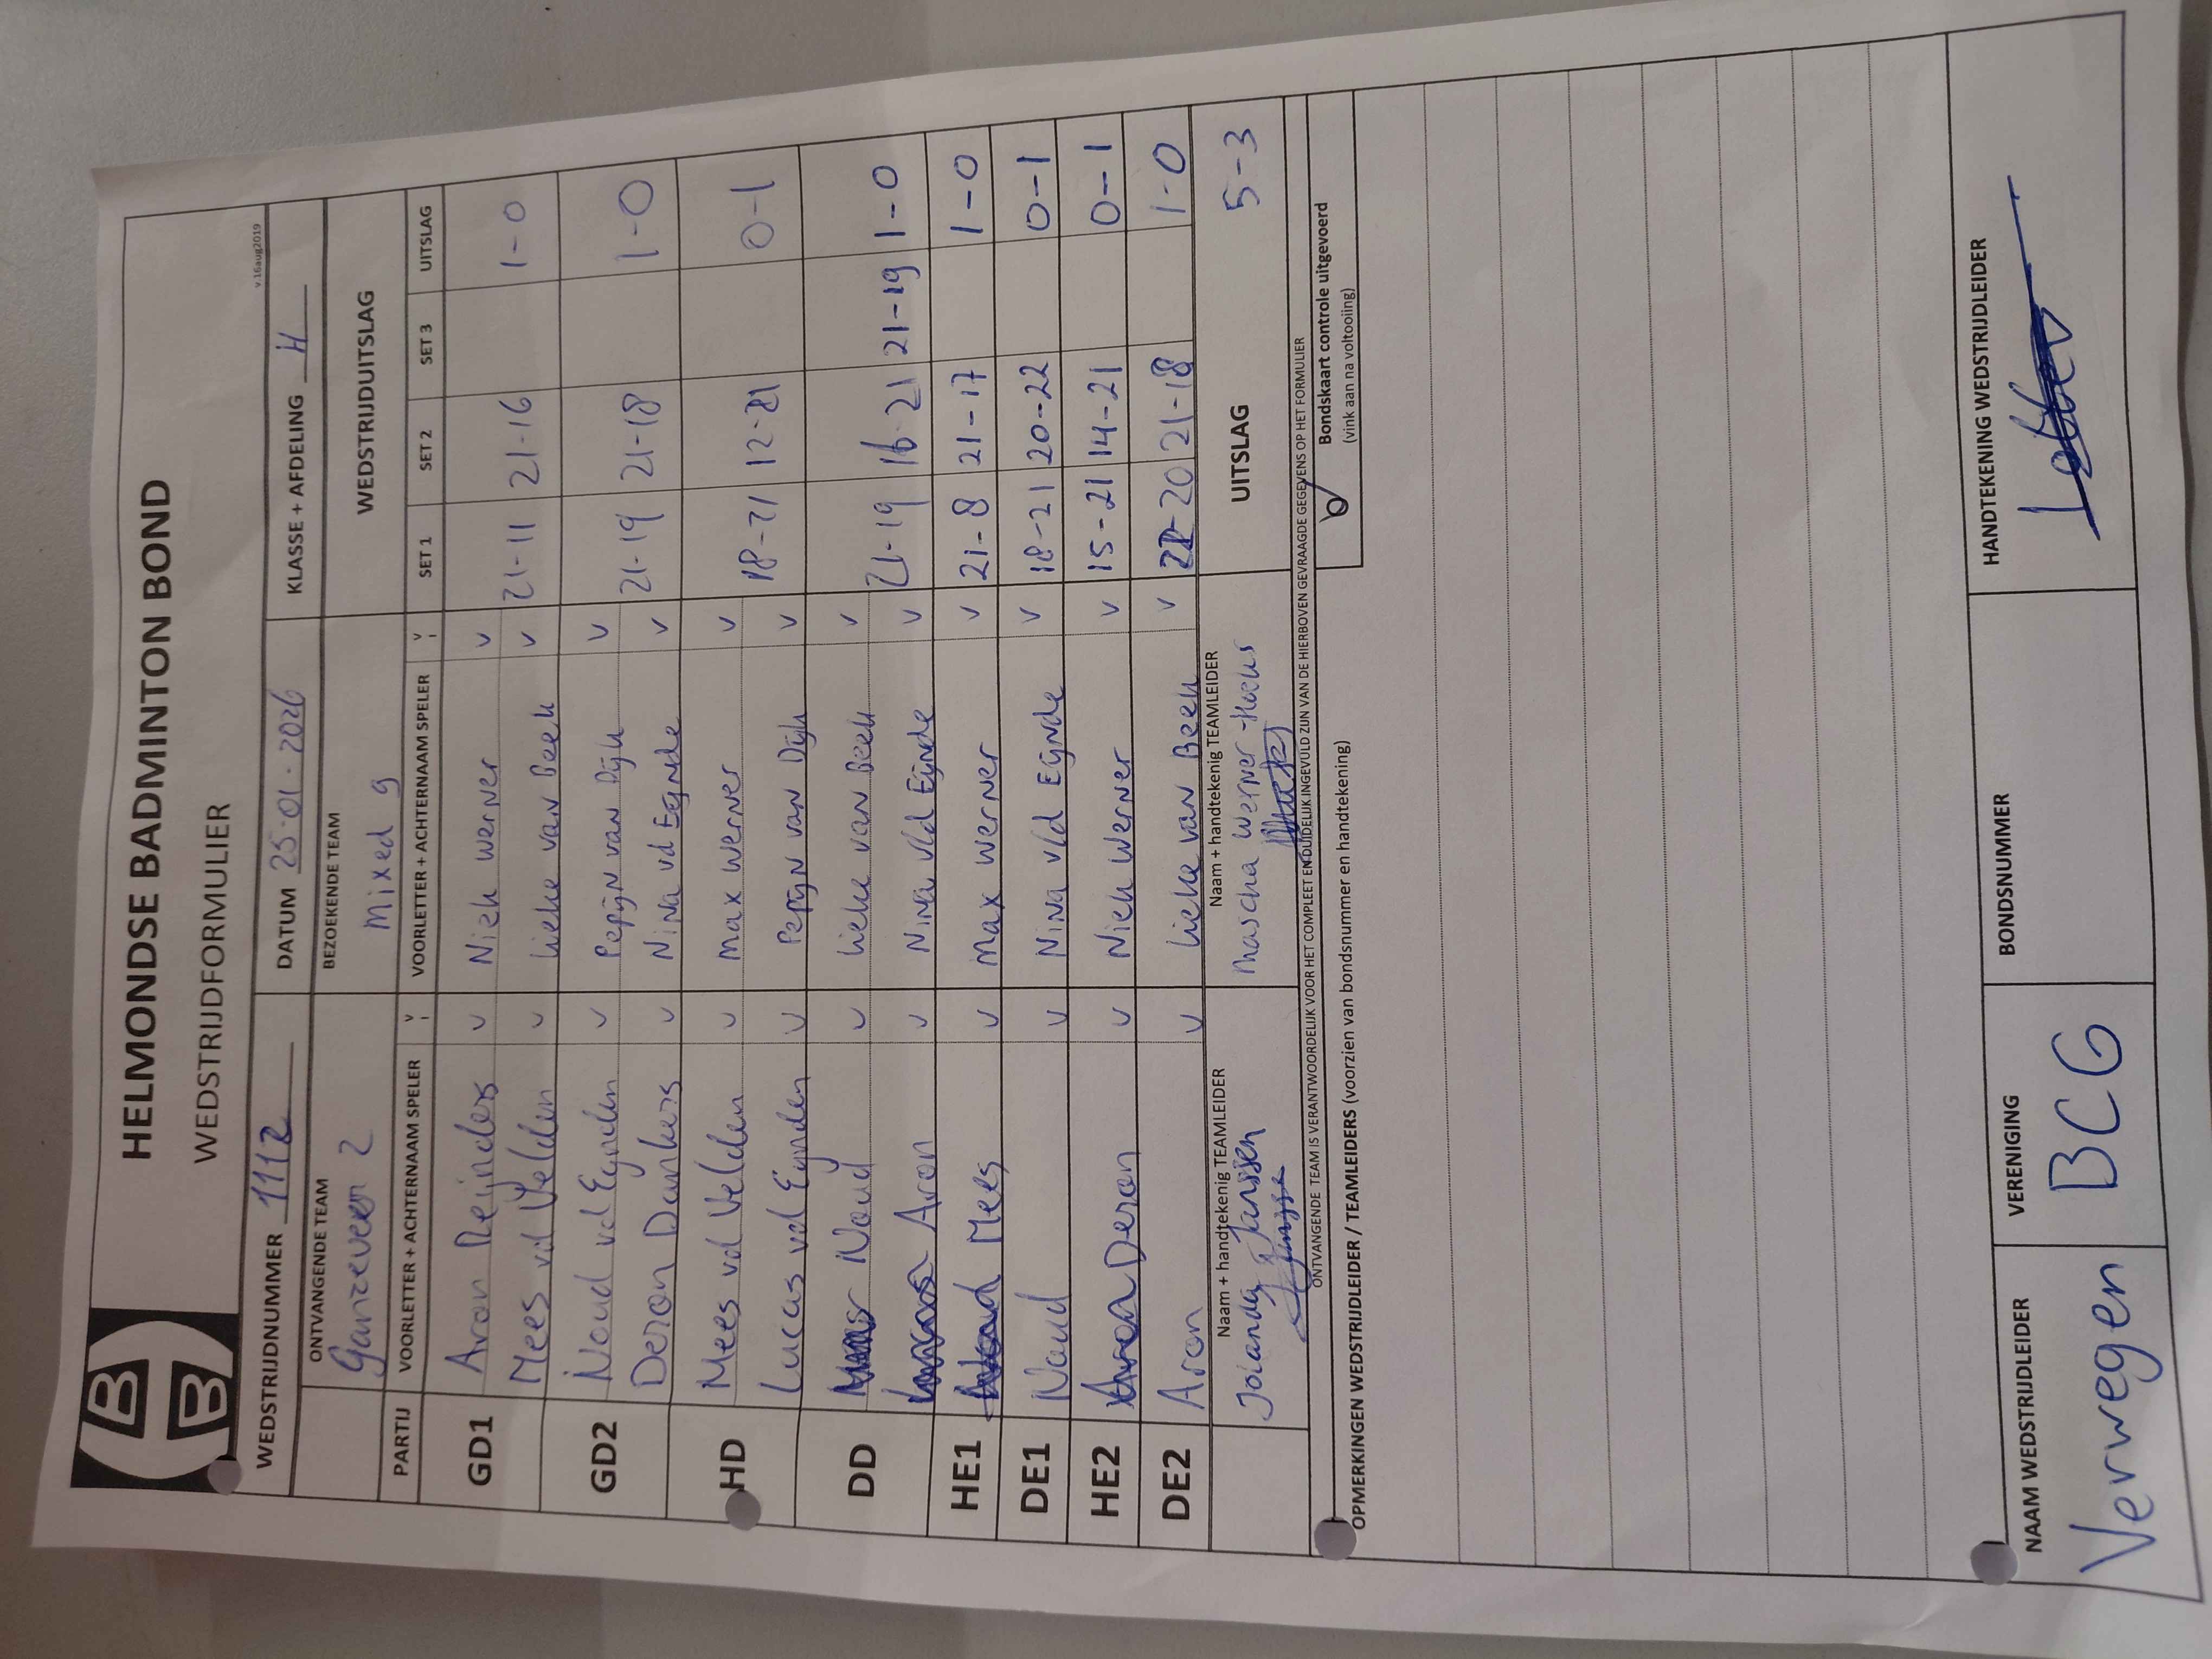 HELMONDSE BADMINTON BOND
WEDSTRIJDFORMULIER
v.16aug2019
WEDSTRIJDNUMMER 1112 DATUM 25-01-2026 KLASSE + AFDELING H
ONTVANGENDE TEAM BEZOEKENDE TEAM WEDSTRIJDUITSLAG
Ganzeveer 2 Mixed 9
PARTIJ VOORLETTER + ACHTERNAAM SPELER V VOORLETTER + ACHTERNAAM SPELER V SET 1 SET 2 SET 3 UITSLAG
GD1 Aron Reijnders v Niek Werner v
Mees vd Velden v Lieke van Beek v 21-11 21-16 1-0
GD2 Noud vd Eynden v Pepijn van Dijk v
Deron Dankers v Nina vd Eijnde v 21-19 21-18 1-0
HD Mees vd Velden v Max Werner v
Lucas vd Eynden v Pepijn van Dijk v 18-21 12-21 0-1
DD Noud v Lieke van Beek v
Aron v Nina v/d Eijnde v 21-19 16-21 21-19 1-0
HE1 Mees v Max Werner v 21-8 21-17 1-0
DE1 Noud v Nina v/d Eijnde v 18-21 20-22 0-1
HE2 Deron v Niek Werner v 15-21 14-21 0-1
DE2 Aron v Lieke van Beek v 22-20 21-18 1-0
Naam + handtekenig TEAMLEIDER Naam + handtekenig TEAMLEIDER UITSLAG 5-3
Jolanda Janssen Mascha Werner-
ONTVANGENDE TEAM IS VERANTWOORDELIJK VOOR HET COMPLEET EN DUIDELIJK INGEVULD ZIJN VAN DE HIERBOVEN GEVRAAGDE GEGEVENS OP HET FORMULIER
Bondskaart controle uitgevoerd
(vink aan na voltooiing)
OPMERKINGEN WEDSTRIJDLEIDER / TEAMLEIDERS (voorzien van bondsnummer en handtekening)
NAAM WEDSTRIJDLEIDER VERENIGING BONDSNUMMER HANDTEKENING WEDSTRIJDLEIDER
Verwegen BCG